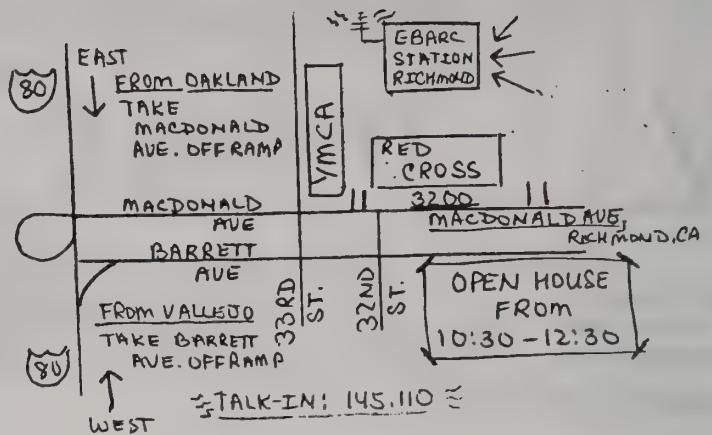 EAST
80
FROM OAKLAND
TAKE
MACDONALD
AVE. OFF RAMP
YMCA
EBARC
STATION
RICHMOND
RED
CROSS
3200
MACDONALD
AVE
MACDONALD AVE,
RICHMOND, CA
BARRETT
AVE
33RD
ST.
32ND
ST.
OPEN HOUSE
FROM
10:30 - 12:30
FROM VALLEJO
TAKE BARRETT
AVE. OFFRAMP
80
WEST
TALK-IN: 145.110